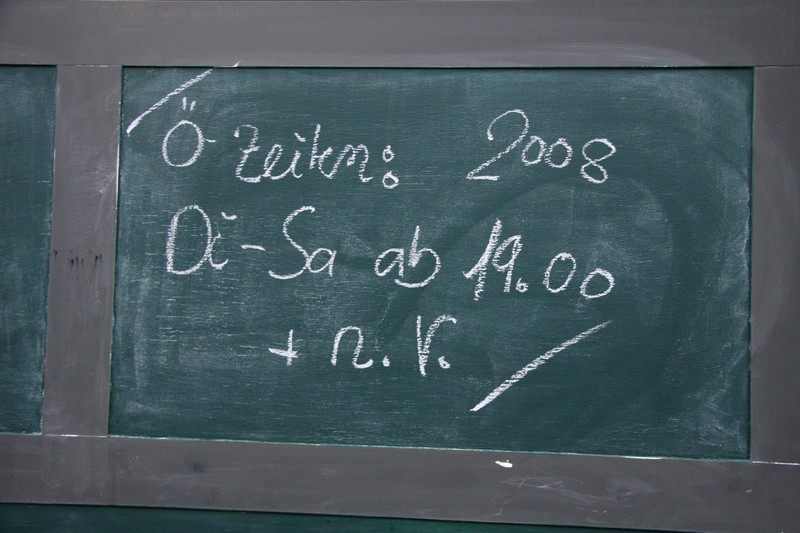 Ö-Zeiten: 2008
Di-Sa ab 19.00
+ n. V.